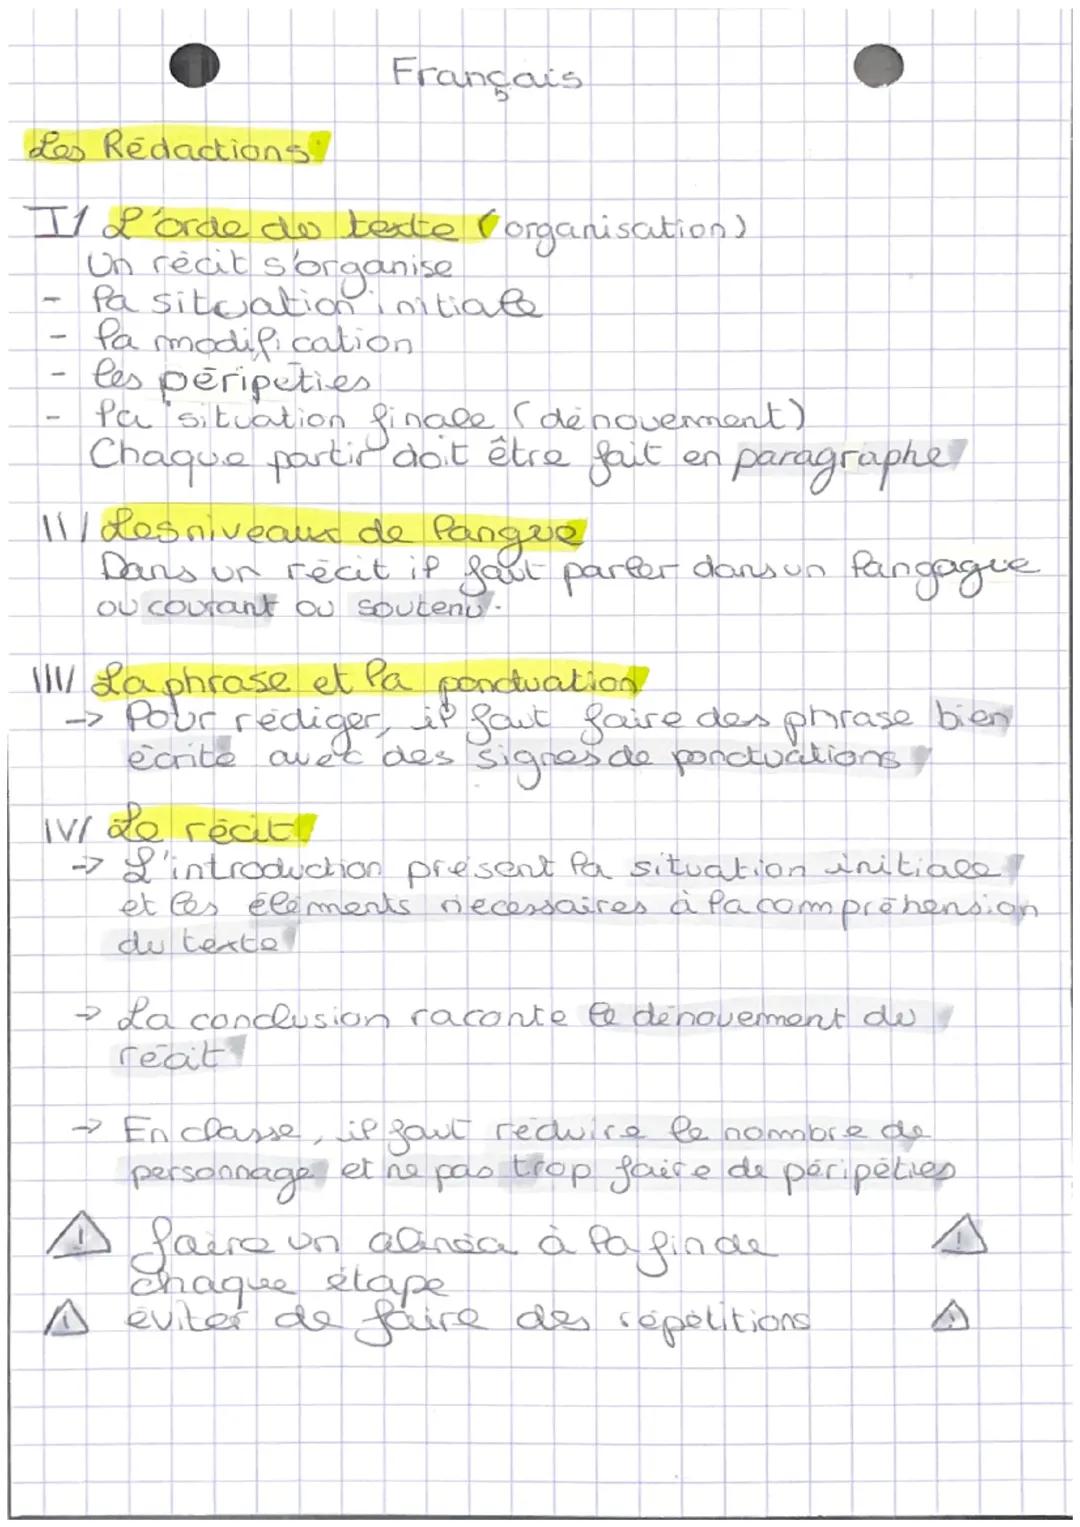 Français
Les Rédactions
I/ L'orde du texte (organisation)
Un récit s'organise
- la situation initiale
- la modification
- les péripeties
- la situation finale (dénouement)
Chaque partir doit être fait en paragraphe
II/ Les niveaux de langue
Dans un récit il faut parler dans un langague
ou courant ou soutenu.
III/ La phrase et la ponctuation
-> Pour rédiger, il faut faire des phrase bien
écrite avec des signes de ponctuations
IV/ Le récit
-> L'introduction présent la situation initiale
et les éléments necessaires à la compréhension
du texte
-> La conclusion raconte le dénouement du
récit
-> En classe, il faut réduire le nombre de
personnage et ne pas trop faire de péripéties
⚠ faire un alinéa à la fin de ⚠
chaque étape
⚠ éviter de faire des répétitions ⚠